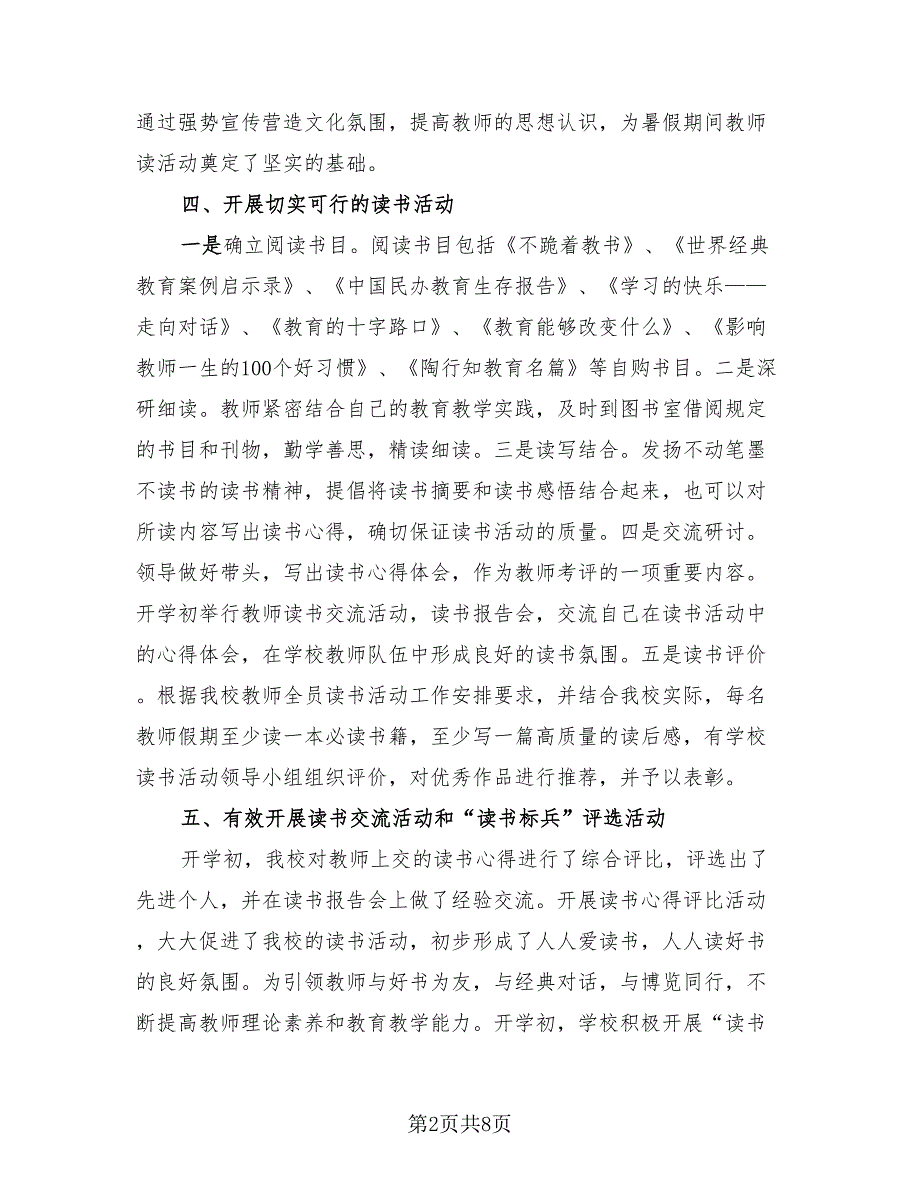 通过强势宣传营造文化氛围，提高教师的思想认识，为暑假期间教师
读活动奠定了坚实的基础。
四、开展切实可行的读书活动
一是确立阅读书目。阅读书目包括《不跪着教书》、《世界经典
教育案例启示录》、《中国民办教育生存报告》、《学习的快乐——
走向对话》、《教育的十字路口》、《教育能够改变什么》、《影响
教师一生的100个好习惯》、《陶行知教育名篇》等自购书目。二是深
研细读。教师紧密结合自己的教育教学实践，及时到图书室借阅规定
的书目和刊物，勤学善思，精读细读。三是读写结合。发扬不动笔墨
不读书的读书精神，提倡将读书摘要和读书感悟结合起来，也可以对
所读内容写出读书心得，确切保证读书活动的质量。四是交流研讨。
领导做好带头，写出读书心得体会，作为教师考评的一项重要内容。
开学初举行教师读书交流活动，读书报告会，交流自己在读书活动中
的心得体会，在学校教师队伍中形成良好的读书氛围。五是读书评价
。根据我校教师全员读书活动工作安排要求，并结合我校实际，每名
教师假期至少读一本必读书籍，至少写一篇高质量的读后感，有学校
读书活动领导小组组织评价，对优秀作品进行推荐，并予以表彰。
五、有效开展读书交流活动和“读书标兵”评选活动
开学初，我校对教师上交的读书心得进行了综合评比，评选出了
先进个人，并在读书报告会上做了经验交流。开展读书心得评比活动
，大大促进了我校的读书活动，初步形成了人人爱读书，人人读好书
的良好氛围。为引领教师与好书为友，与经典对话，与博览同行，不
断提高教师理论素养和教育教学能力。开学初，学校积极开展“读书
第2页共8页